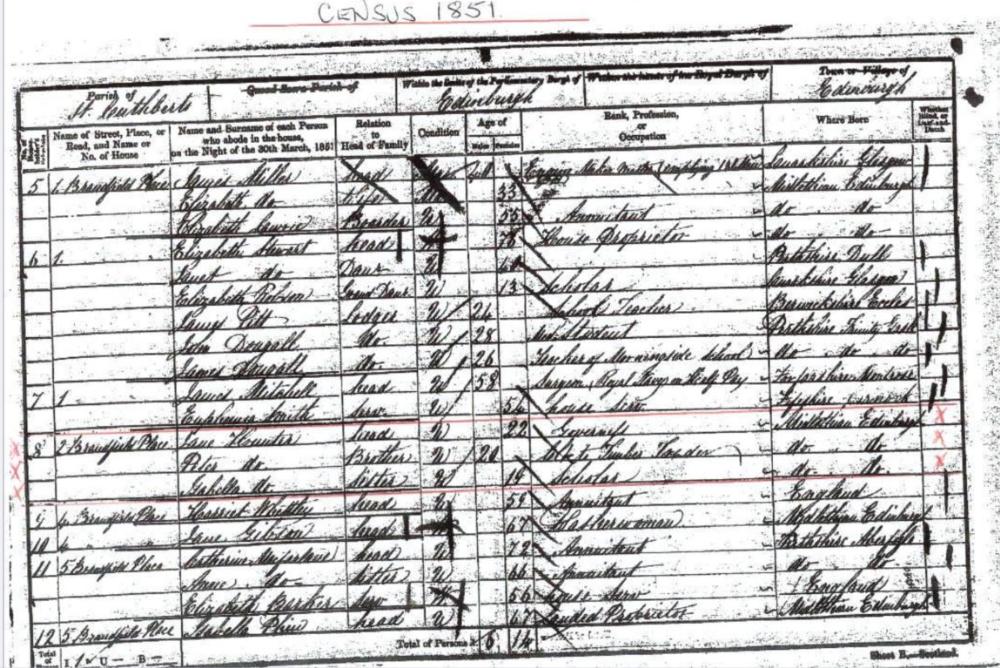 CENSUS 1851.
Parish of Quoad Sacra Parish of Within the limits of the Parliamentary Burgh of Within the limits of the Royal Burgh of Town or Village of
St. Cuthberts Edinburgh Edinburgh
Name of Street, Place, or Road, and Name or No. of House Name and Surname of each Person who abode in the house, on the Night of the 30th March, 1851 Relation to Head of Family Condition Age of Males Females Rank, Profession, or Occupation Where Born Whether Blind, or Deaf-and-Dumb
5 1 Brandfield Place James Miller head 40 Lanarkshire Glasgow
Elizabeth do Wife 33 Midlothian Edinburgh
Elizabeth Lawrie Boarder U 55 Annuitant do do
6 1 Elizabeth Stewart head 78 House Proprietor do do
Janet do Daur U 40 Perthshire Dull
Elizabeth Robson Grand Daur U 13 Scholar Lanarkshire Glasgow
Pitt Lodger U 24 School Teacher Berwickshire Eccles
John Dougall do U 28 Student Perthshire Trinity Gask
James Dougall do U 26 Teacher of Morningside School do do do
7 1 James Mitchell head U 58 Surgeon Royal Navy on Half Pay Forfarshire Montrose
Euphemia Smith Serv U 54 house Serv
8 2 Brandfield Place Jane Hunter head U 22 Governess Midlothian Edinburgh
Peter do Brother U 20 Clerk to Timber Trader do do
Isabella do Sister U 19 Scholar do do
9 4 Brandfield Place Harriet head U 59 Annuitant England
10 4 Jane Gibson head 67 Washerwoman Midlothian Edinburgh
11 5 Brandfield Place Catherine Macfarlane head U 72 Annuitant Perthshire Aberfoyle
Anne do Sister U 66 Annuitant do do
Elizabeth Barker Serv 56 house Serv England
12 5 Brandfield Place Isabella head U 67 Landed Proprietor Midlothian Edinburgh
Total of 1 U — B — Total of Persons 6 14
Sheet B.—Scotland.